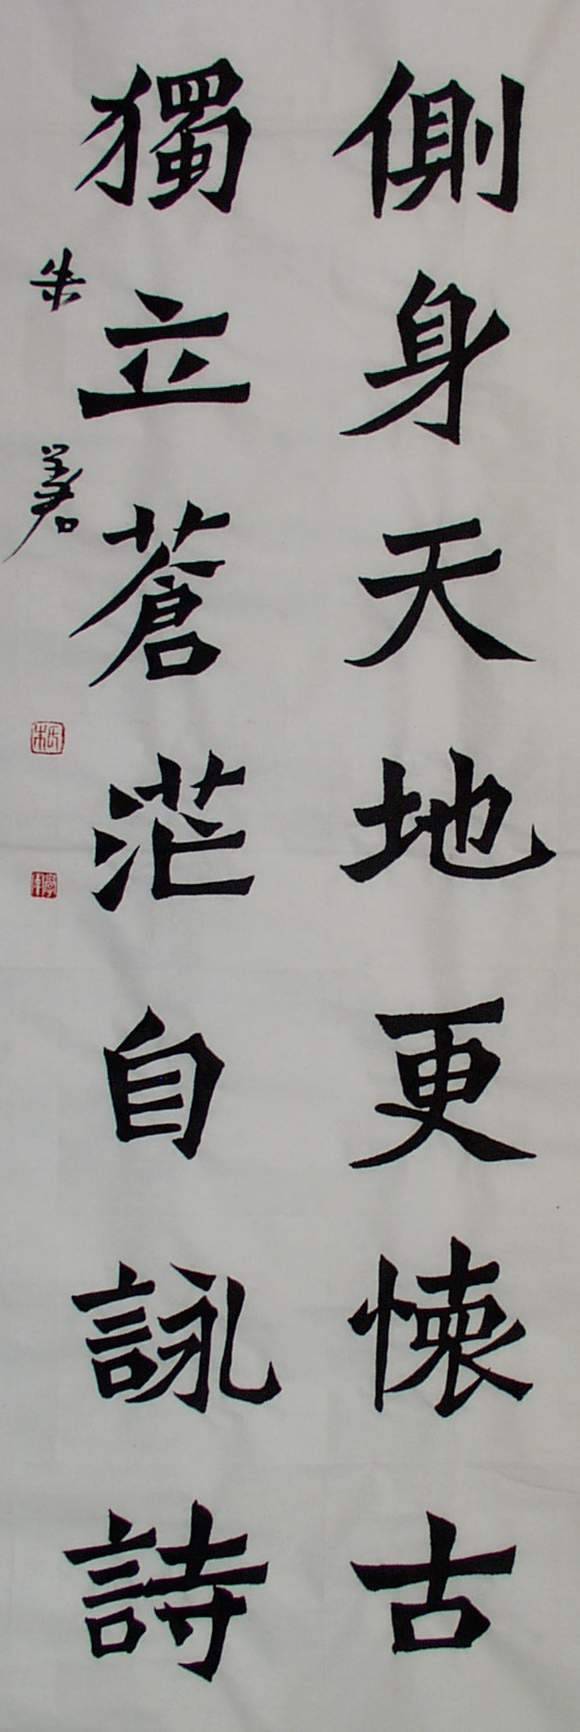 側身天地更懷古
獨立蒼茫自詠詩
朱
朱氏